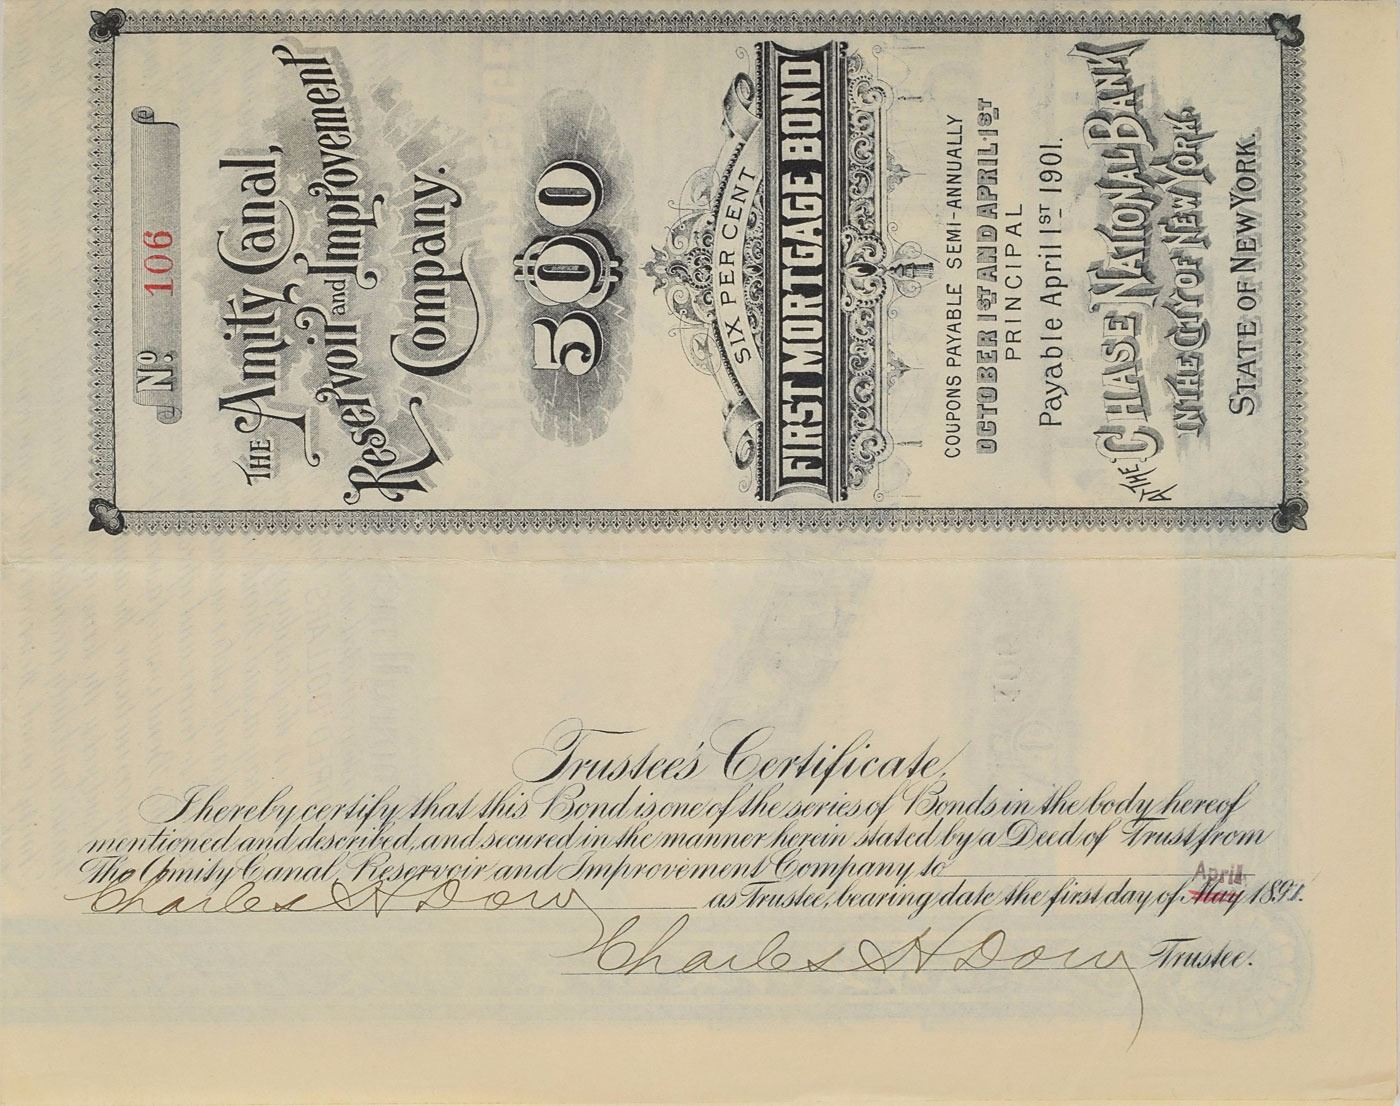 No. 106
THE Amity Canal,
Reservoir and Improvement
Company.
$500
SIX PER CENT
FIRST MORTGAGE BOND
COUPONS PAYABLE SEMI-ANNUALLY
OCTOBER 1ST AND APRIL 1ST
PRINCIPAL
Payable April 1ST 1901.
AT THE CHASE NATIONAL BANK
IN THE CITY OF NEW YORK.
STATE OF NEW YORK.
Trustee's Certificate.
I hereby certify that this Bond is one of the series of Bonds in the body hereof
mentioned and described, and secured in the manner herein stated by a Deed of Trust from
The Amity Canal, Reservoir and Improvement Company to
Charles H Dow as Trustee, bearing date the first day of May April 1891.
Charles H Dow Trustee.